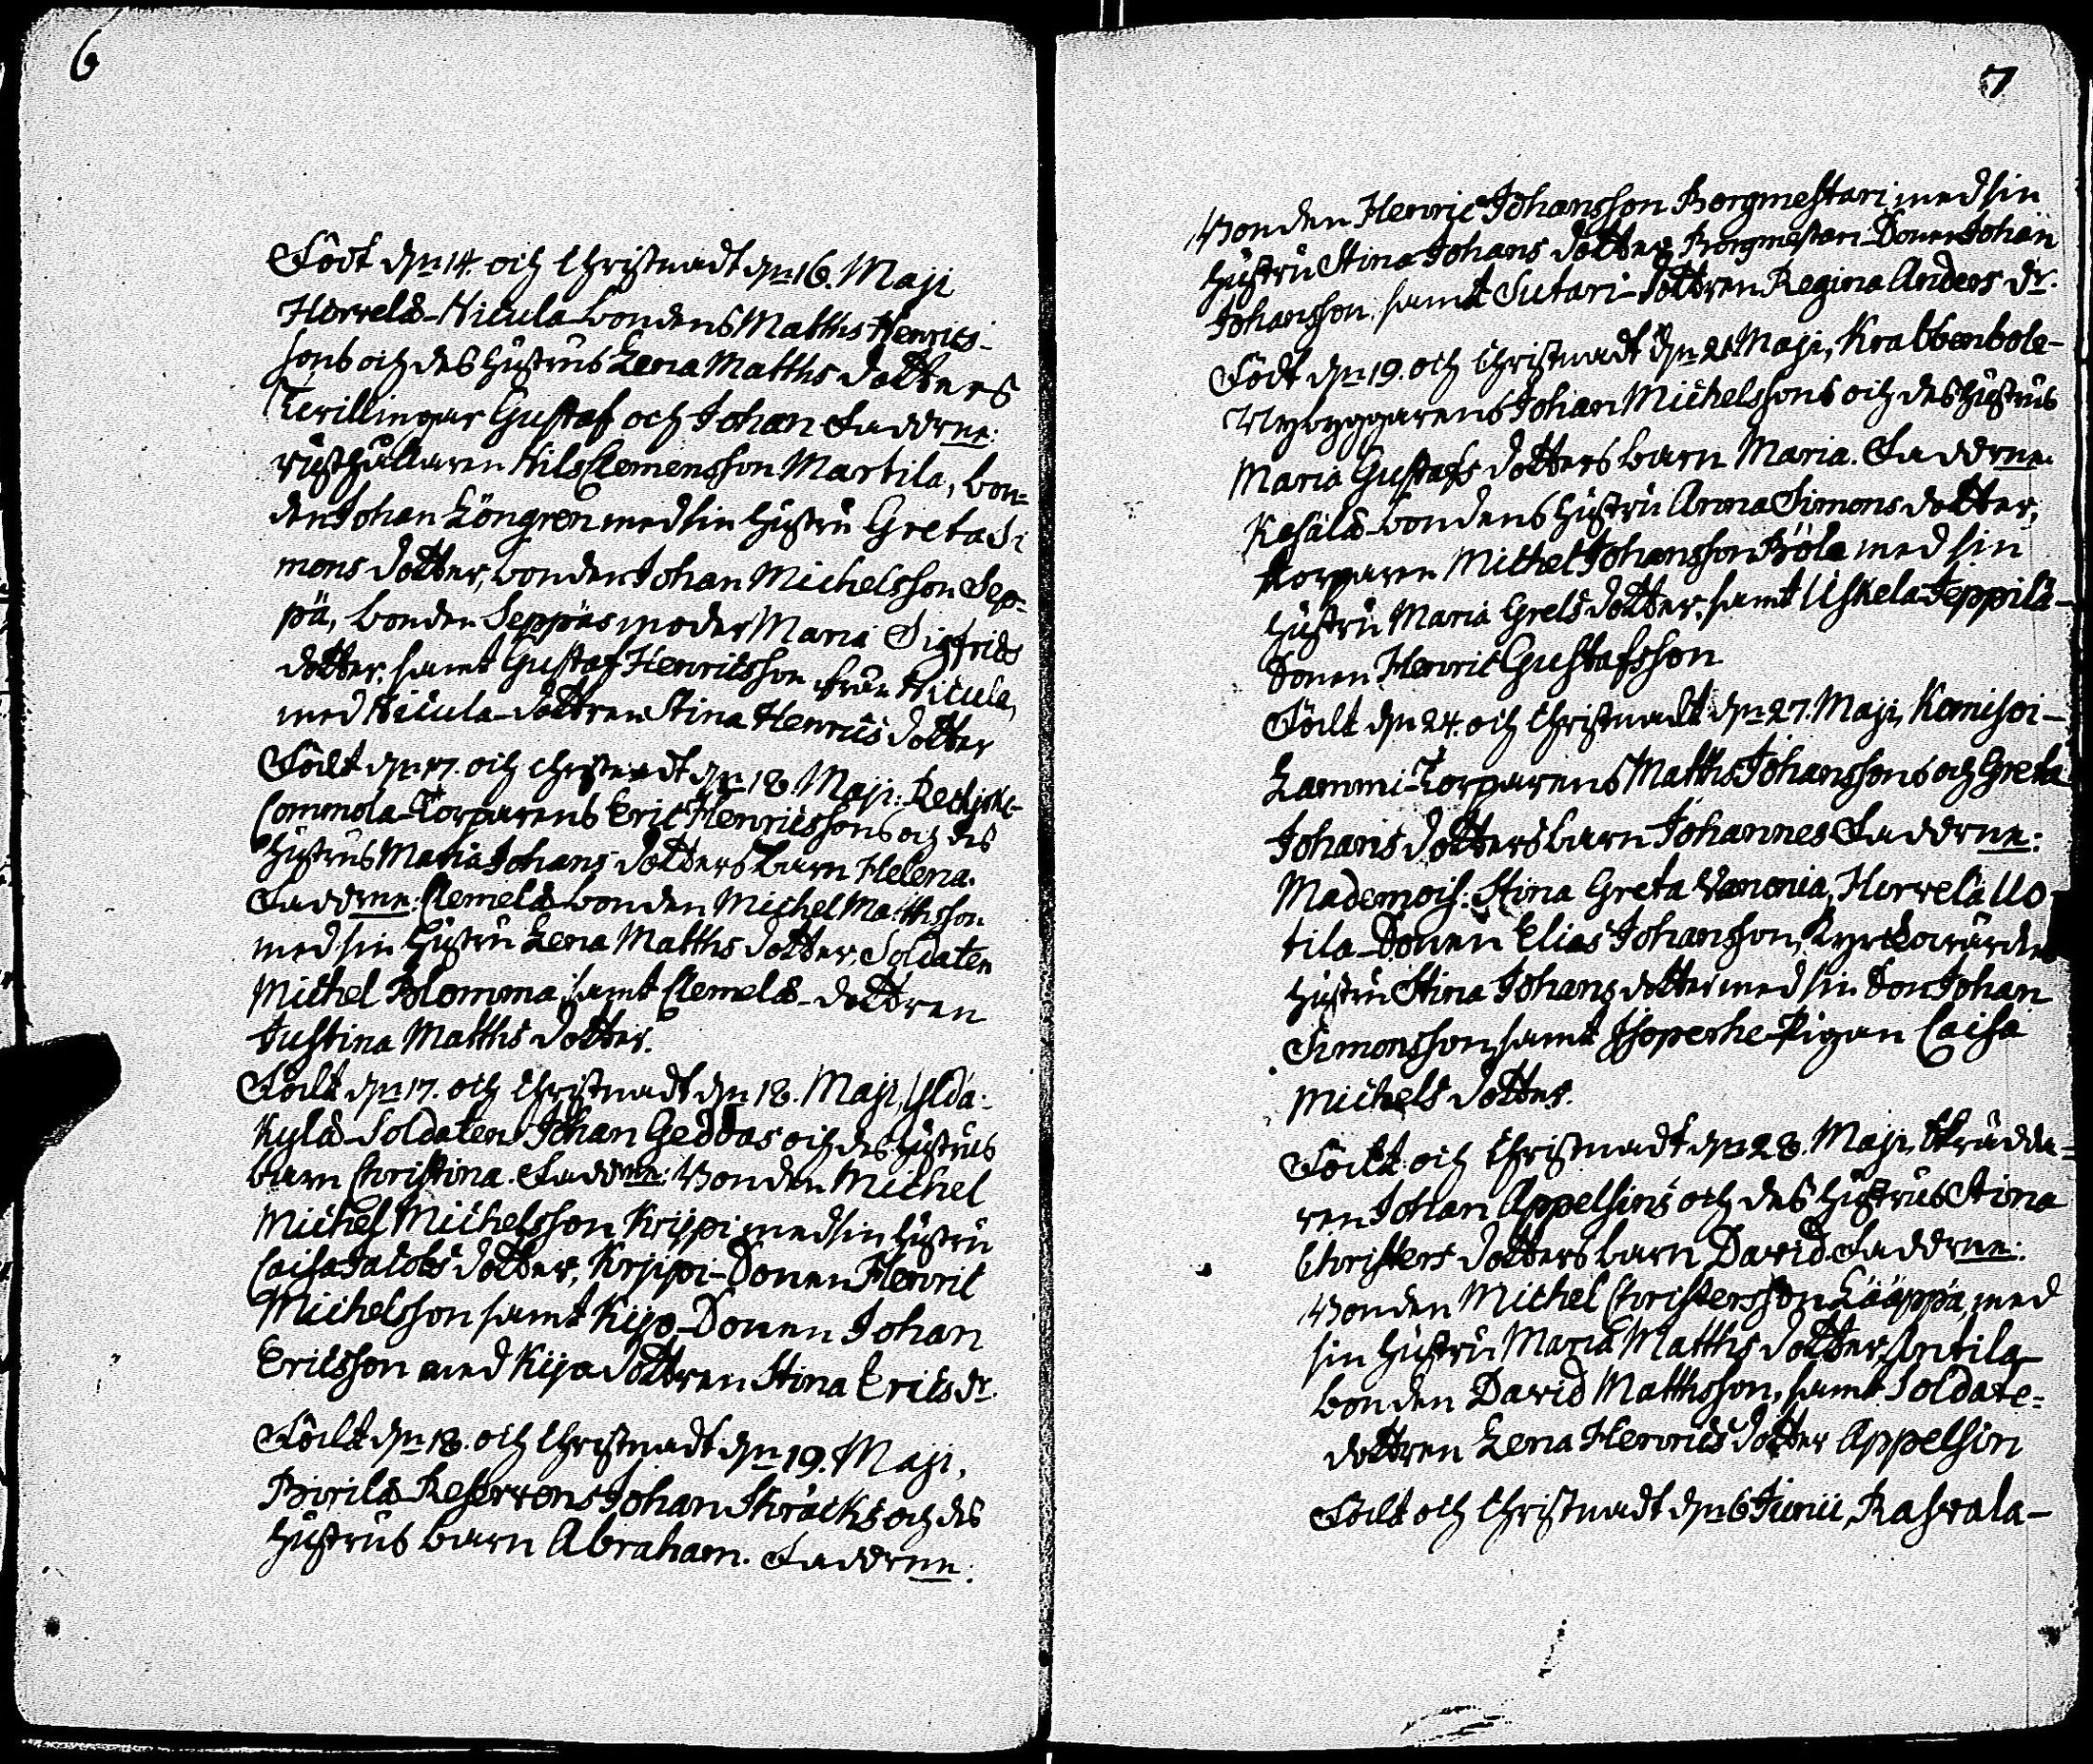 6
Född d:n 14. och Christnadt d:n 16. Maji
Horrelä-Nicula bondens Matths Henrics-
sons och des hustrus Lena Matths dotters
Tvillingar Gustaf och Johan Faddrne:
rusthållaren Nils Clemensson Martila, bon-
den Johan Löngren med sin hustru Greta Si
mons dotter, bonden Johan Michelsson Sep-
pä, bonden Seppäs moder Maria Sigfrids
dotter, samt Gustaf Henricsson från Nicula,
med Nicula-dottren Stina Henrics dotter
Födt d:n 17. och christnadt d:n 18. Maji:
Commola-Torparens Eric Henricssons och des
hustrus Maria Johans dotters barn Helena.
Faddrne: Clemelä-bonden Michel Matthsson
med sin hustru Lena Matths dotter, Soldaten
Michel Blomma, samt Clemelä-dottren
Justina Matths dotter.
Födt d:n 17. och Christnadt d:n 18. Maji,
Kylä-Soldatens Johan Geddas och des hustrus
barn Christina. Faddrne: Bonden Michel
Michel Michelsson Krijpi med sin hustru
Caisa Jacobs dotter, Krjipi-Sonen Henric
Michelsson samt Kijo-Sonen Johan
Ericsson med Kijo dottren Stina Erics dr.
Födt d:n 18. och Christnadt d:n 19. Maji,
Pirilä Reservens Johan Skräcks och des
hustrus barn Abraham. Faddrne:
7
Bonden Henric Johansson Borgmestari med sin
hustru Stina Johans dotter, Borgmestari-Sonen Johan
Johansson, samt Sutari-dottren Regina Anders dr.
Född d:n 19. och Christnadt d:n 21 Maji, Krabbenbole-
Nybyggarens Johan Michelssons och des hustrus
Maria Gustafs dotters barn Maria. Faddrne:
Kesälä-bondens hustru Anna Simons dotter,
torparen Michel Johansson Böle med sin
hustru Maria Grels dotter, samt Uskela Jeppilä-
Sonen Henric Gustafsson
Födt d:n 24. och Christnadt d:n 27. Maji, Komisoi-
Lammi-Torparens Matths Johanssons och Greta
Johans dotters barn Johannes Faddrne:
Mademois. Stina Greta Vanonia, Horrelä Uo-
tila-Sonen Elias Johansson, Kyrckovärden
hustru Stina Johans dotter med sin Son Johan
Simonsson, samt Isoperhe-Pigan Caisa
Michels dotter.
Födt och Christnadt d:n 28. Maji, Skrädda-
ren Johan Appelsins och des hustrus Stina
Christers dotters barn David Faddrne:
Bonden Michel Christersson Lääppä, med
sin hustru Maria Matths dotter, Antila
bonden David Matthsson, samt Soldate-
dottren Lena Henrics dotter Appelsin
Födt och Christnadt d:n 6 Junii, Rasvala-